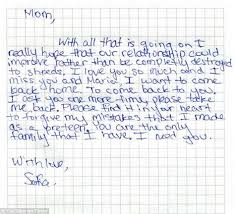 Mom,
With all that is going on I
really hope that our relationship could
improve rather than be completely destroyed
to shreds. I love you so much and I
miss you and Maria. I want to come
back home. To come back to you,
I ask you one more time, please take
me back. Please find it in your heart
to forgive my mistakes that I made
as a preteen. You are the only
family that I have. I need you.
With love,